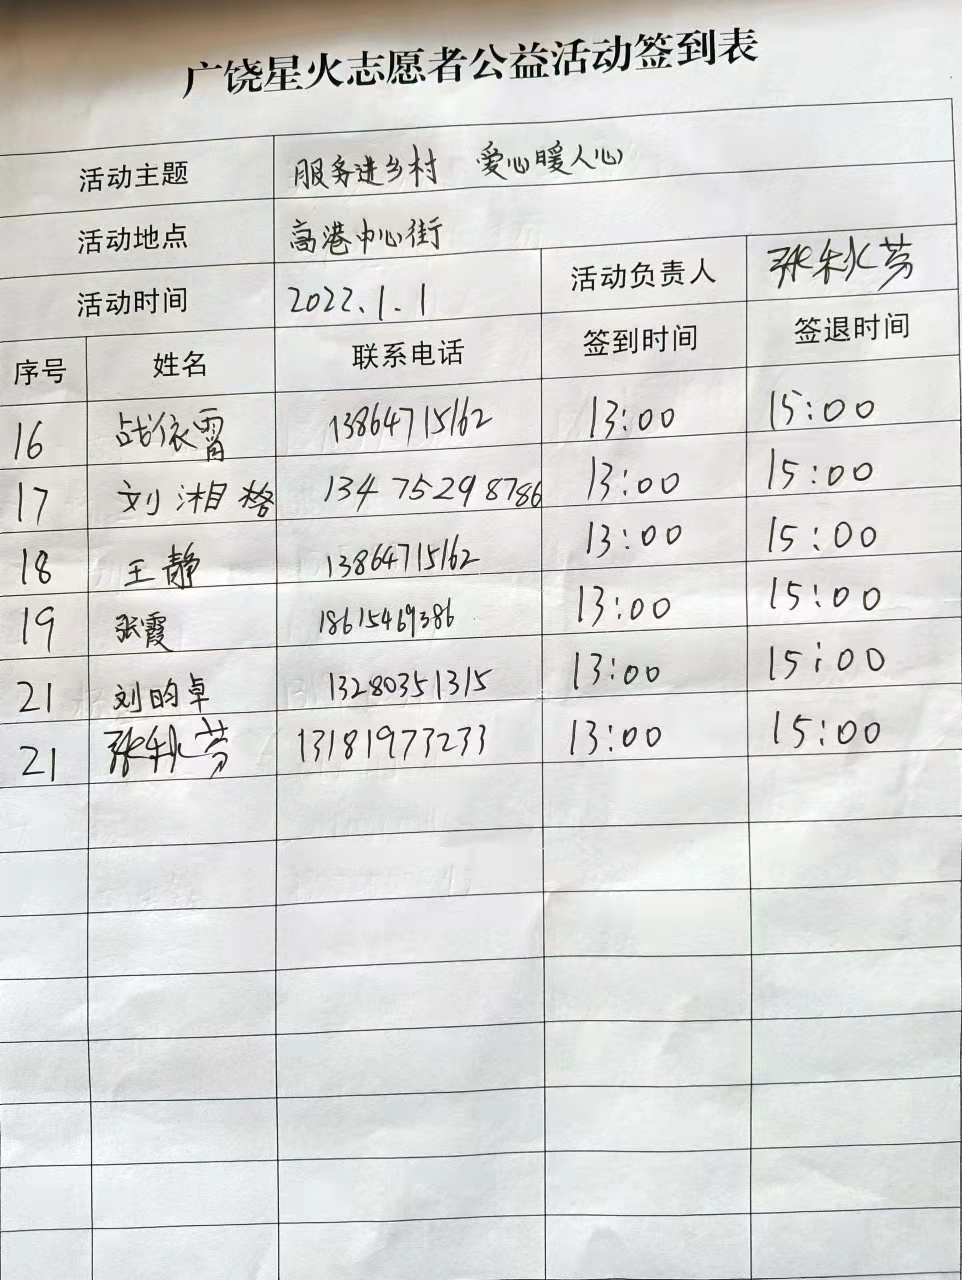 广饶星火志愿者公益活动签到表
活动主题 服务进乡村 爱心暖人心
活动地点 高港中心街
活动时间 2022.1.1 活动负责人 张秋芬
序号 姓名 联系电话 签到时间 签退时间
16 战依霄 13864715162 13:00 15:00
17 刘湘格 13475298786 13:00 15:00
18 王静 13864715162 13:00 15:00
19 张霞 18615469386 13:00 15:00
21 刘昀卓 13280351315 13:00 15:00
21 张秋芬 13181973233 13:00 15:00